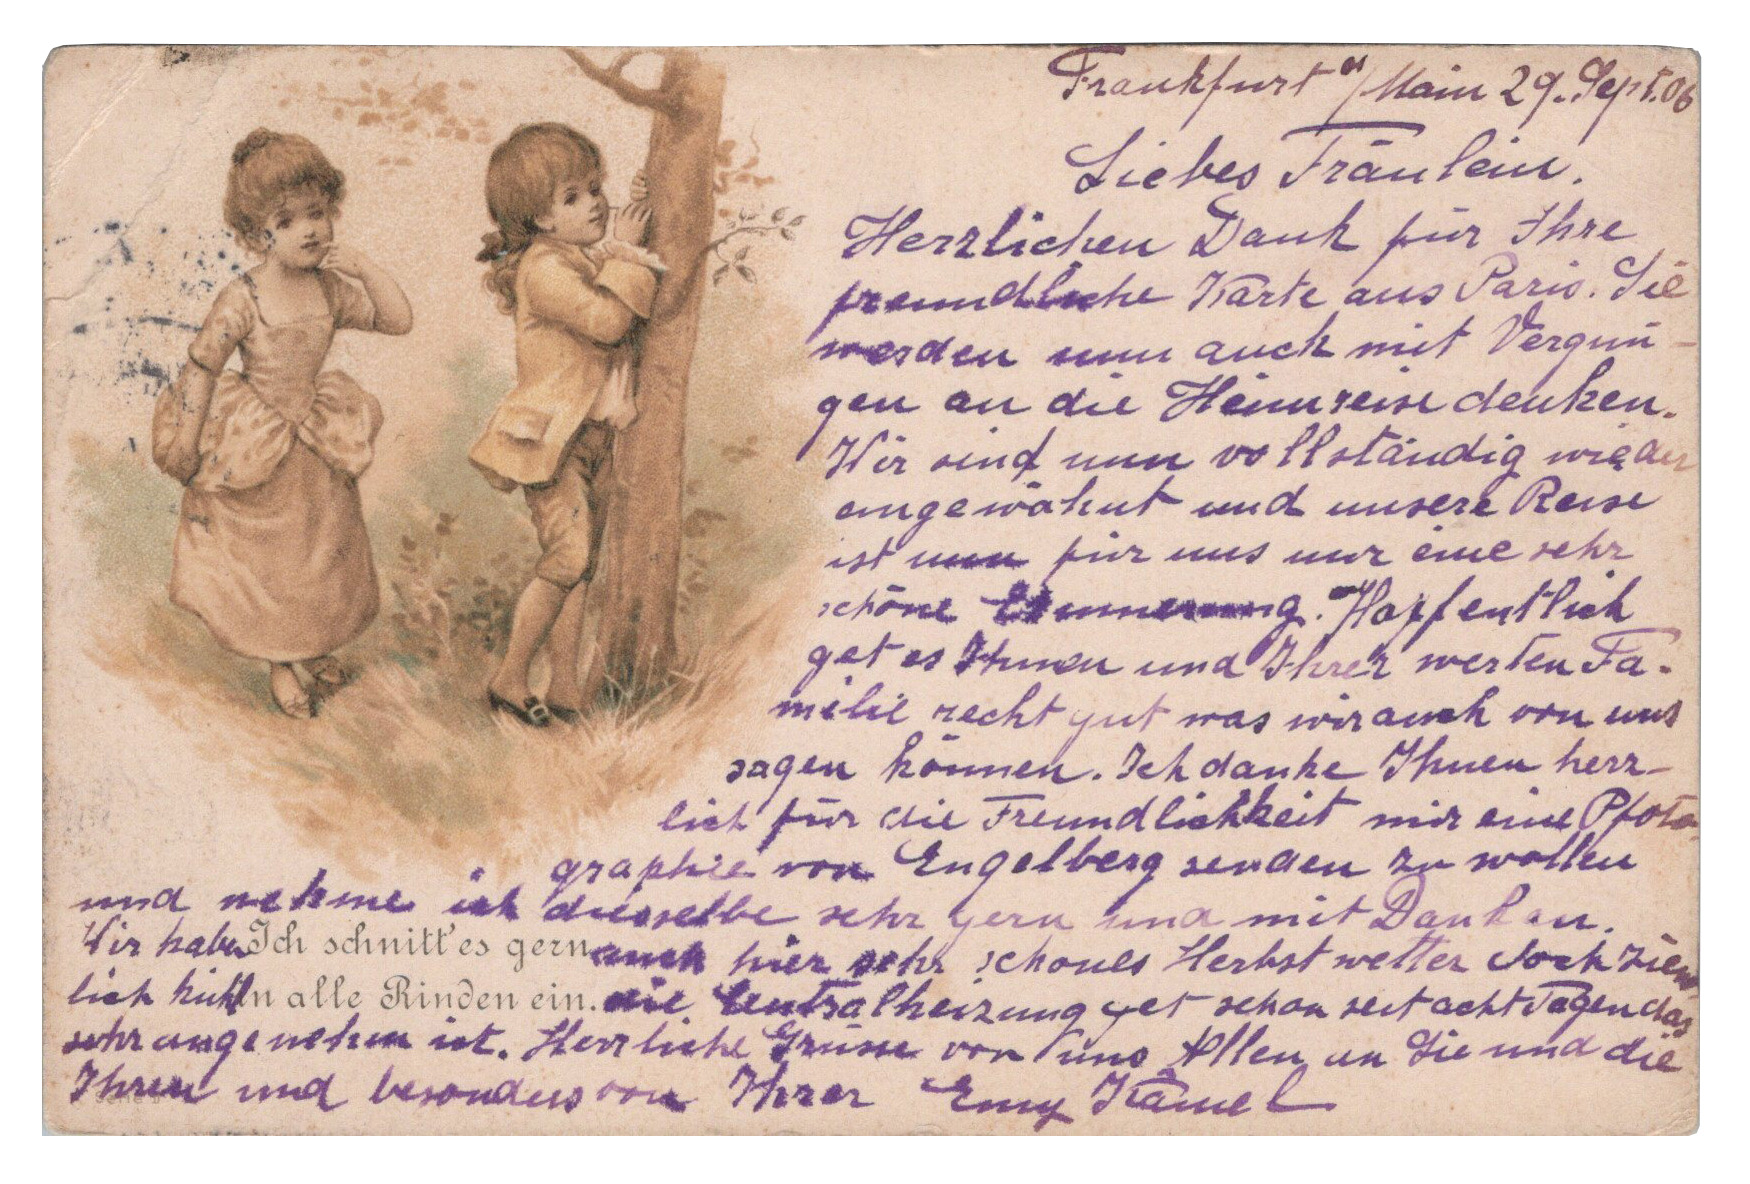 Frankfurt a/Main 29. Sept. 06
Liebes Fräulein.
Herzlichen Dank für Ihre
freundliche Karte aus Paris. Sie
werden nun auch mit Vergnü-
gen an die Heimreise denken.
Wir sind nun vollständig wieder
eingewöhnt und unsere Reise
ist nun für uns nur eine sehr
schöne Erinnerung. Hoffentlich
get es Ihnen und Ihrer werten Fa-
milie recht gut was wir auch von uns
sagen können. Ich danke Ihnen herz-
lich für die Freundlichkeit mir eine Pfoto-
graphie von Engelberg senden zu wollen
und nehme ich diesselbe sehr gern und mit Dank an.
Wir haben auch hier sehr schönes Herbstwetter doch ziem-
lich kühl die Centralheizung get schon seit acht Tagen das
sehr angenehm ist. Herrliche Grüsse von uns Allen an Sie und die
Ihren und besonders von Ihrer Emy
Ich schnitt' es gern
in alle Rinden ein.